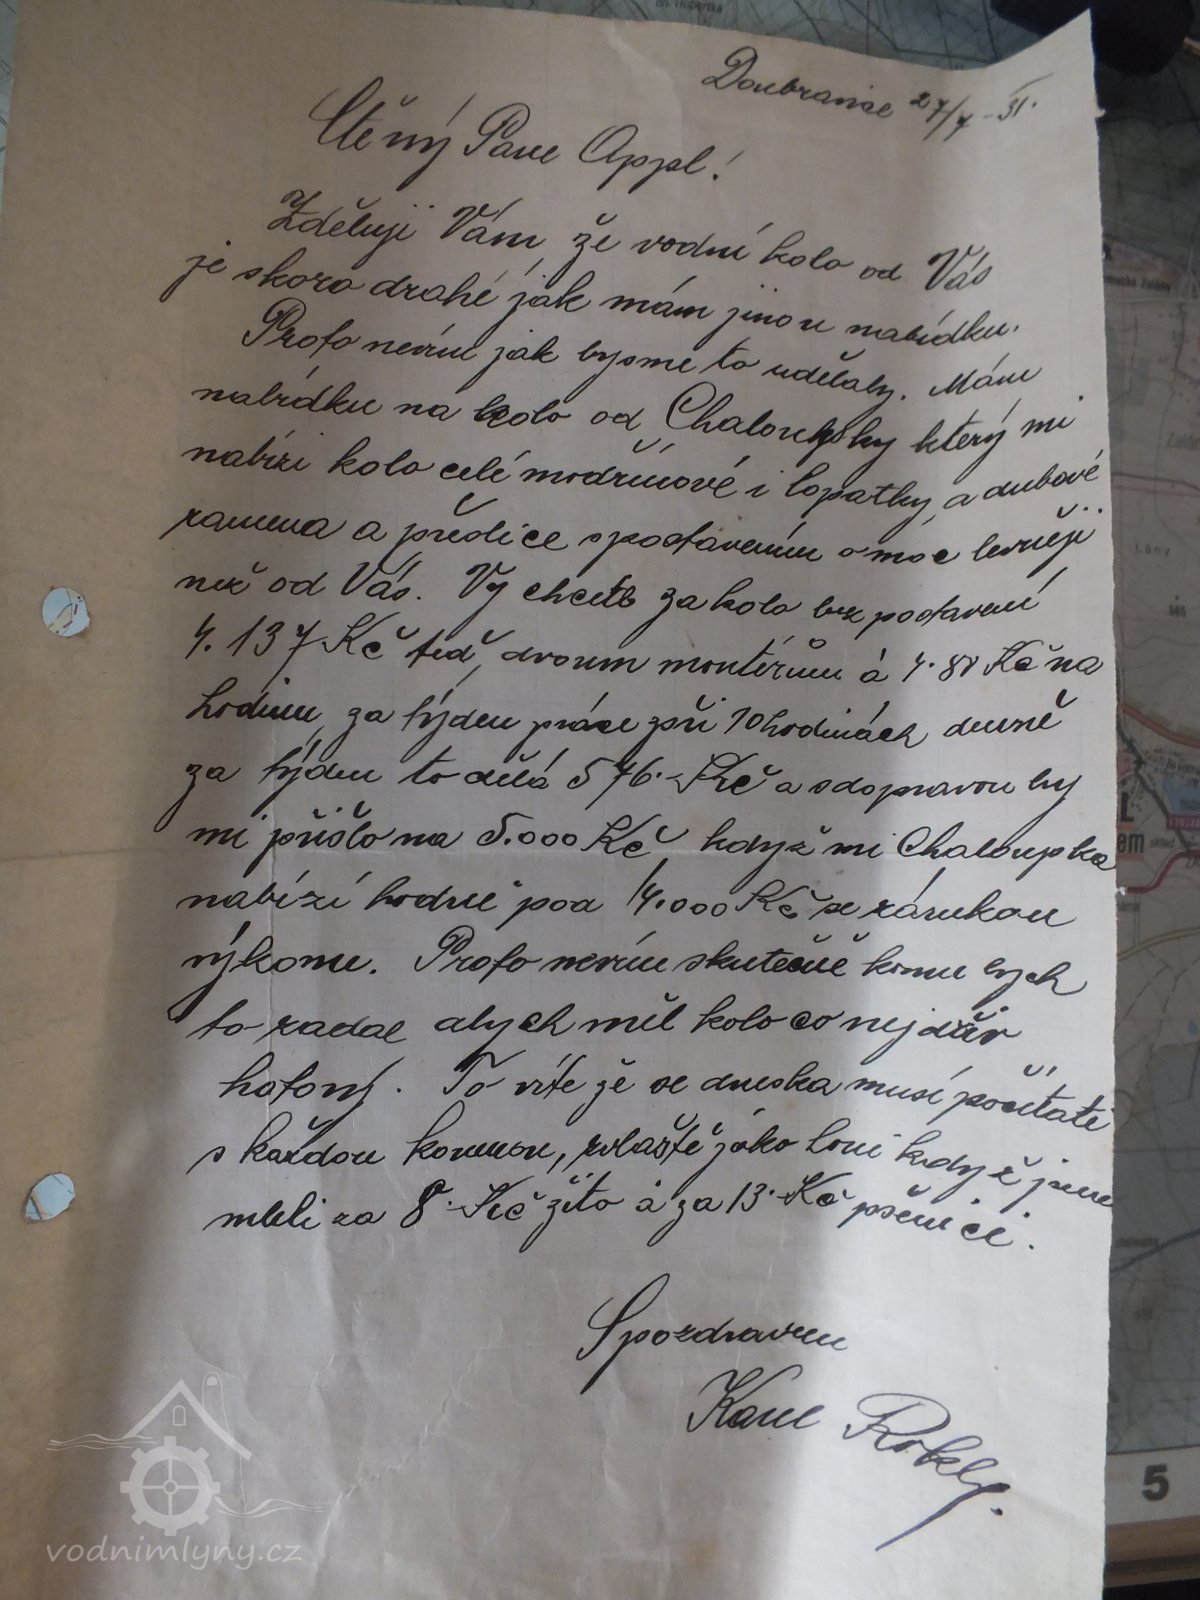 Doubravice 27/7 - 31.
Ctěný Pane Appl!
Zděluji Vám, že vodní kolo od Vás
je skoro drahé jak mám jinou nabídku.
Proto nevím jak bysme to udělaly. Mám
nabídku na kolo od Chaloupky který mi
nabízí kolo celé modřínové i lopatky, a dubové
ramena a předlice spostavením o moc levněji
než od Vás. Vy chcete za kolo bez postavení
4.137 Kč teď, dvoum montérům á 4.80 Kč na
hodinu, za týden práce při 10 hodinách denně
za týden to dělá 576.- Kč a sdopravou by
mi přišlo na 5.000 Kč, když mi Chaloupka
nabízí hodně pod 4.000 Kč se zárukou
výkonu. Proto nevím skutečně komu bych
to zadal abych měl kolo co nejdřív
hotový. To víte že se dneska musí počítati
s každou korunou, zvlaště jako loni když jsme
mleli za 8.- Kč žito a za 13.- Kč pšenici.
Spozdravem
Karel
vodnimlyny.cz
Lány
5